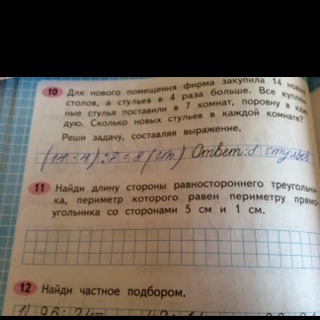 10 Для нового помещения фирма закупила 14 новых
столов, а стульев в 4 раза больше. Все куплен
ные стулья поставили в 7 комнат, поровну в каж
дую. Сколько новых стульев в каждой комнате?
Реши задачу, составляя выражение.
(14 · 4) : 7 = 8 (ст) Ответ: 8 стульев
11 Найди длину стороны равностороннего треугольни-
ка, периметр которого равен периметру прямо-
угольника со сторонами 5 см и 1 см.
12 Найди частное подбором.
1) 96 : 24